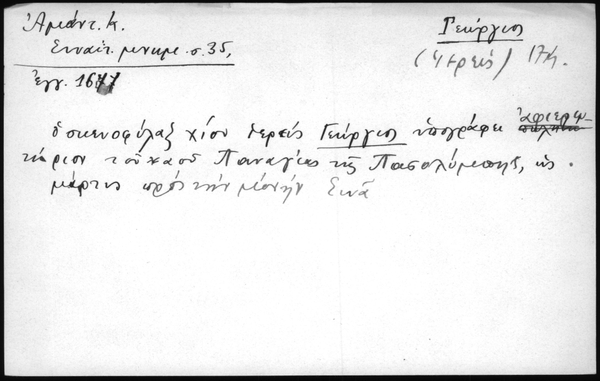 Ἀμάντ. Κ.
Σιναϊτ. μνημ. σ. 35,
Ἐγγ. 1671
Γεώργιος
(ἱερεύς) 17η.
ὁ σκευοφύλαξ Χίου ἱερεὺς Γεώργιος ὑπογράφει ἀφιερω-
τήριον τοῦ ναοῦ Παναγίας τῆς, ὡς
μάρτυς πρὸς τὴν μονὴν Σινᾶ